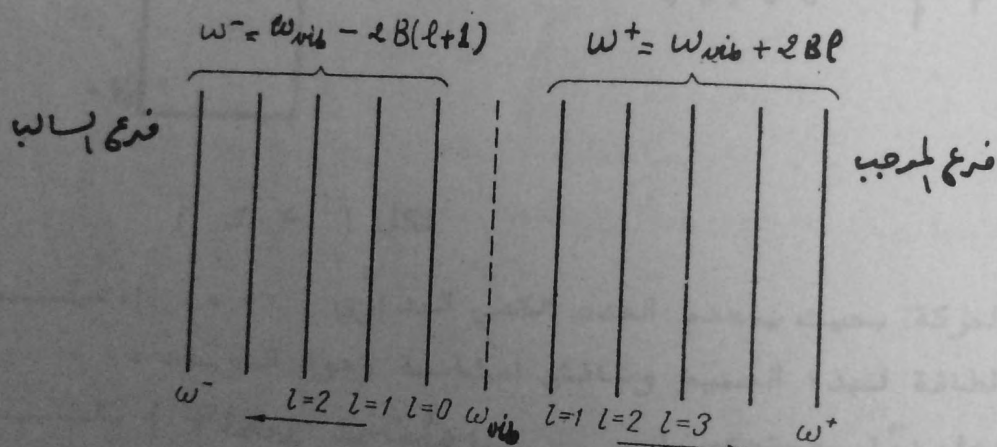 ω⁻ = ω_vib − 2B(ℓ+1)
ω⁺ = ω_vib + 2Bℓ
فرع السالب
فرع الموجب
ω⁻ l=2 l=1 l=0 ω_vib l=1 l=2 l=3 ω⁺